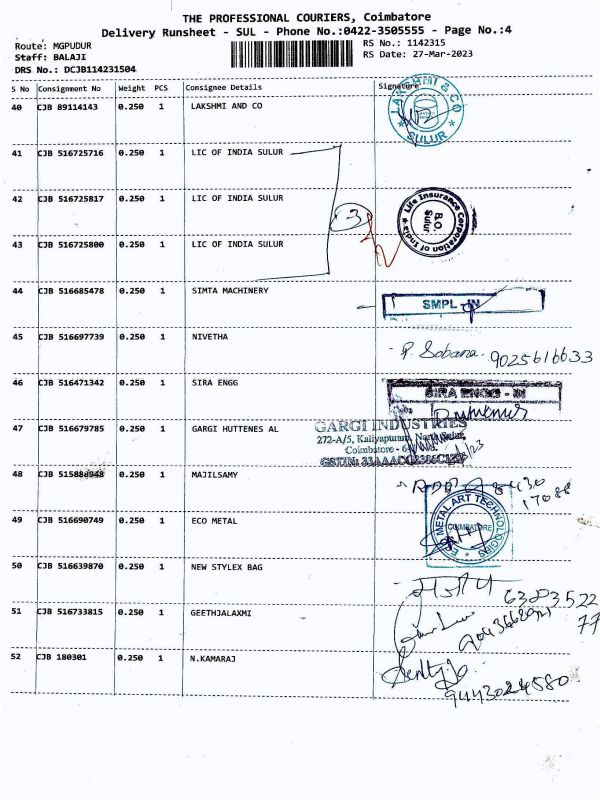 THE PROFESSIONAL COURIERS, Coimbatore
Delivery Runsheet - SUL - Phone No.:0422-3505555 - Page No.:4
Route: MGPUDUR
Staff: BALAJI
DRS No.: DCJB114231504
RS No.: 1142315
RS Date: 27-Mar-2023
S No Consignment No Weight PCS Consignee Details Signature
40 CJB 89114143 0.250 1 LAKSHMI AND CO
LAKSHMI & CO
SULUR
41 CJB 516725716 0.250 1 LIC OF INDIA SULUR
42 CJB 516725817 0.250 1 LIC OF INDIA SULUR
3
Life Insurance Corporation of India
B.O.
Sulur
43 CJB 516725800 0.250 1 LIC OF INDIA SULUR
44 CJB 516685478 0.250 1 SIMTA MACHINERY
SMPL - IN
45 CJB 516697739 0.250 1 NIVETHA
P. Sobana. 9025616633
46 CJB 516471342 0.250 1 SIRA ENGG
SIRA ENGG - IN
47 CJB 516679785 0.250 1 GARGI HUTTENES AL
GARGI INDUSTRIES
272-A/5, Kaliyapuram,
Coimbatore -
48 CJB 515888948 0.250 1 MAJILSAMY
49 CJB 516690749 0.250 1 ECO METAL
METAL ART TECHNOLOGIES
COIMBATORE
50 CJB 516639870 0.250 1 NEW STYLEX BAG
6383522
77
51 CJB 516733815 0.250 1 GEETHJALAXMI
52 CJB 180301 0.250 1 N.KAMARAJ
9443024580